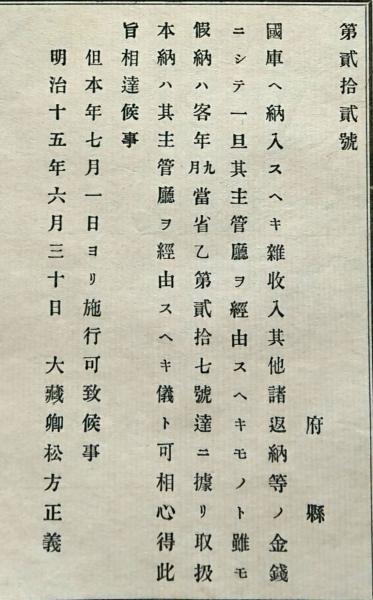 第貳拾貳號
府縣
國庫ヘ納入スヘキ雜收入其他諸返納等ノ金錢
ニシテ一旦其主管廳ヲ經由スヘキモノト雖モ
假納ハ客年九月當省乙第貳拾七號達ニ據リ取扱
本納ハ其主管廳ヲ經由スヘキ儀ト可相心得此
旨相達候事
但本年七月一日ヨリ施行可致候事
明治十五年六月三十日 大藏卿松方正義